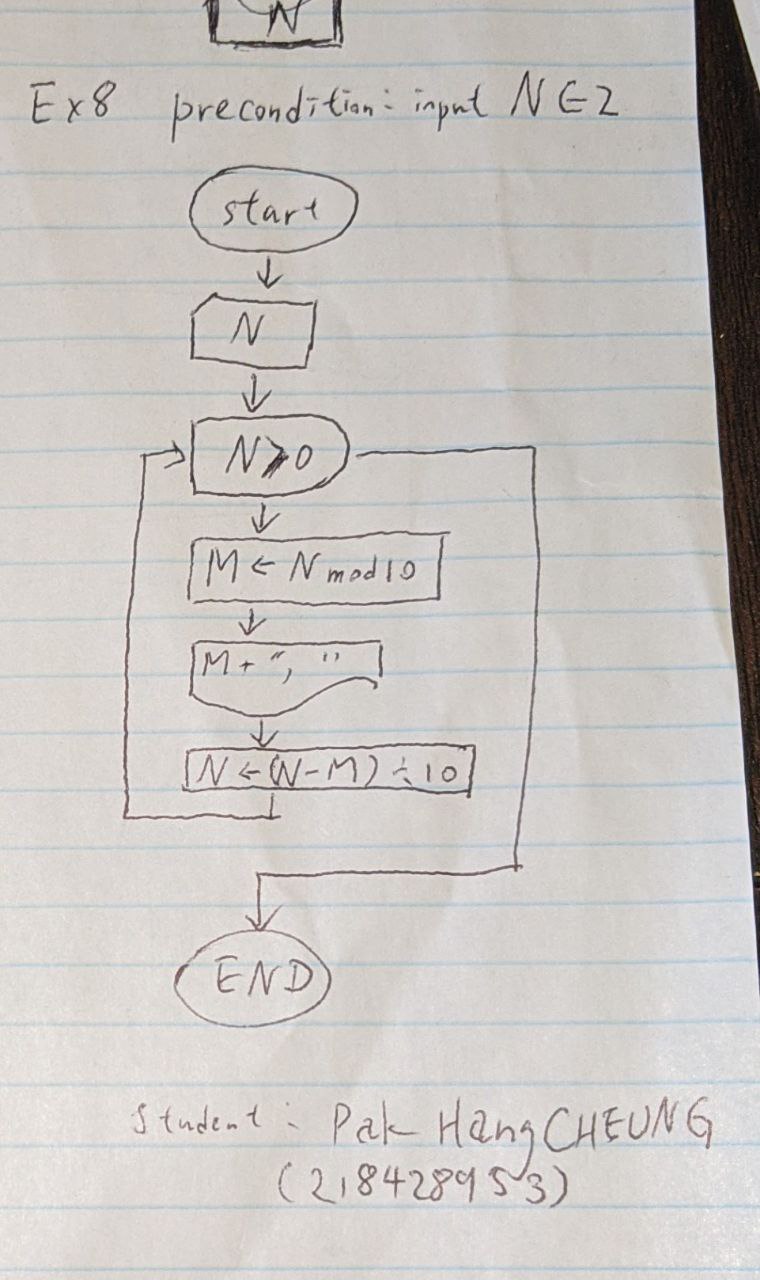 N
Ex8 precondition: input N ∈ Z
start
N
N > 0
M ← N mod 10
M + ", "
N ← (N - M) ÷ 10
END
Student: Pak Hang CHEUNG
(218428953)